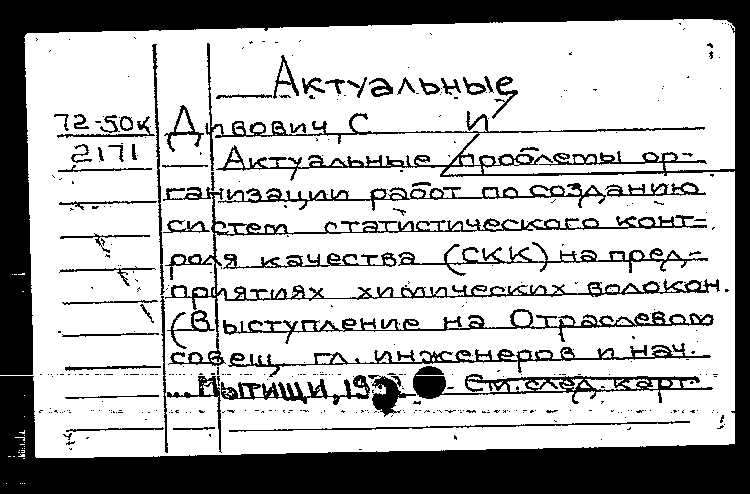 Актуальные
72-50к Дивович, С И
2171 Актуальные проблемы ор-
ганизации работ по созданию
систем статистического конт-
роля качества (СКК) на пред-
приятиях химических волокон.
(Выступление на Отраслевом
совещ. гл. инженеров и нач.
... Мытищи, См. след. карт.